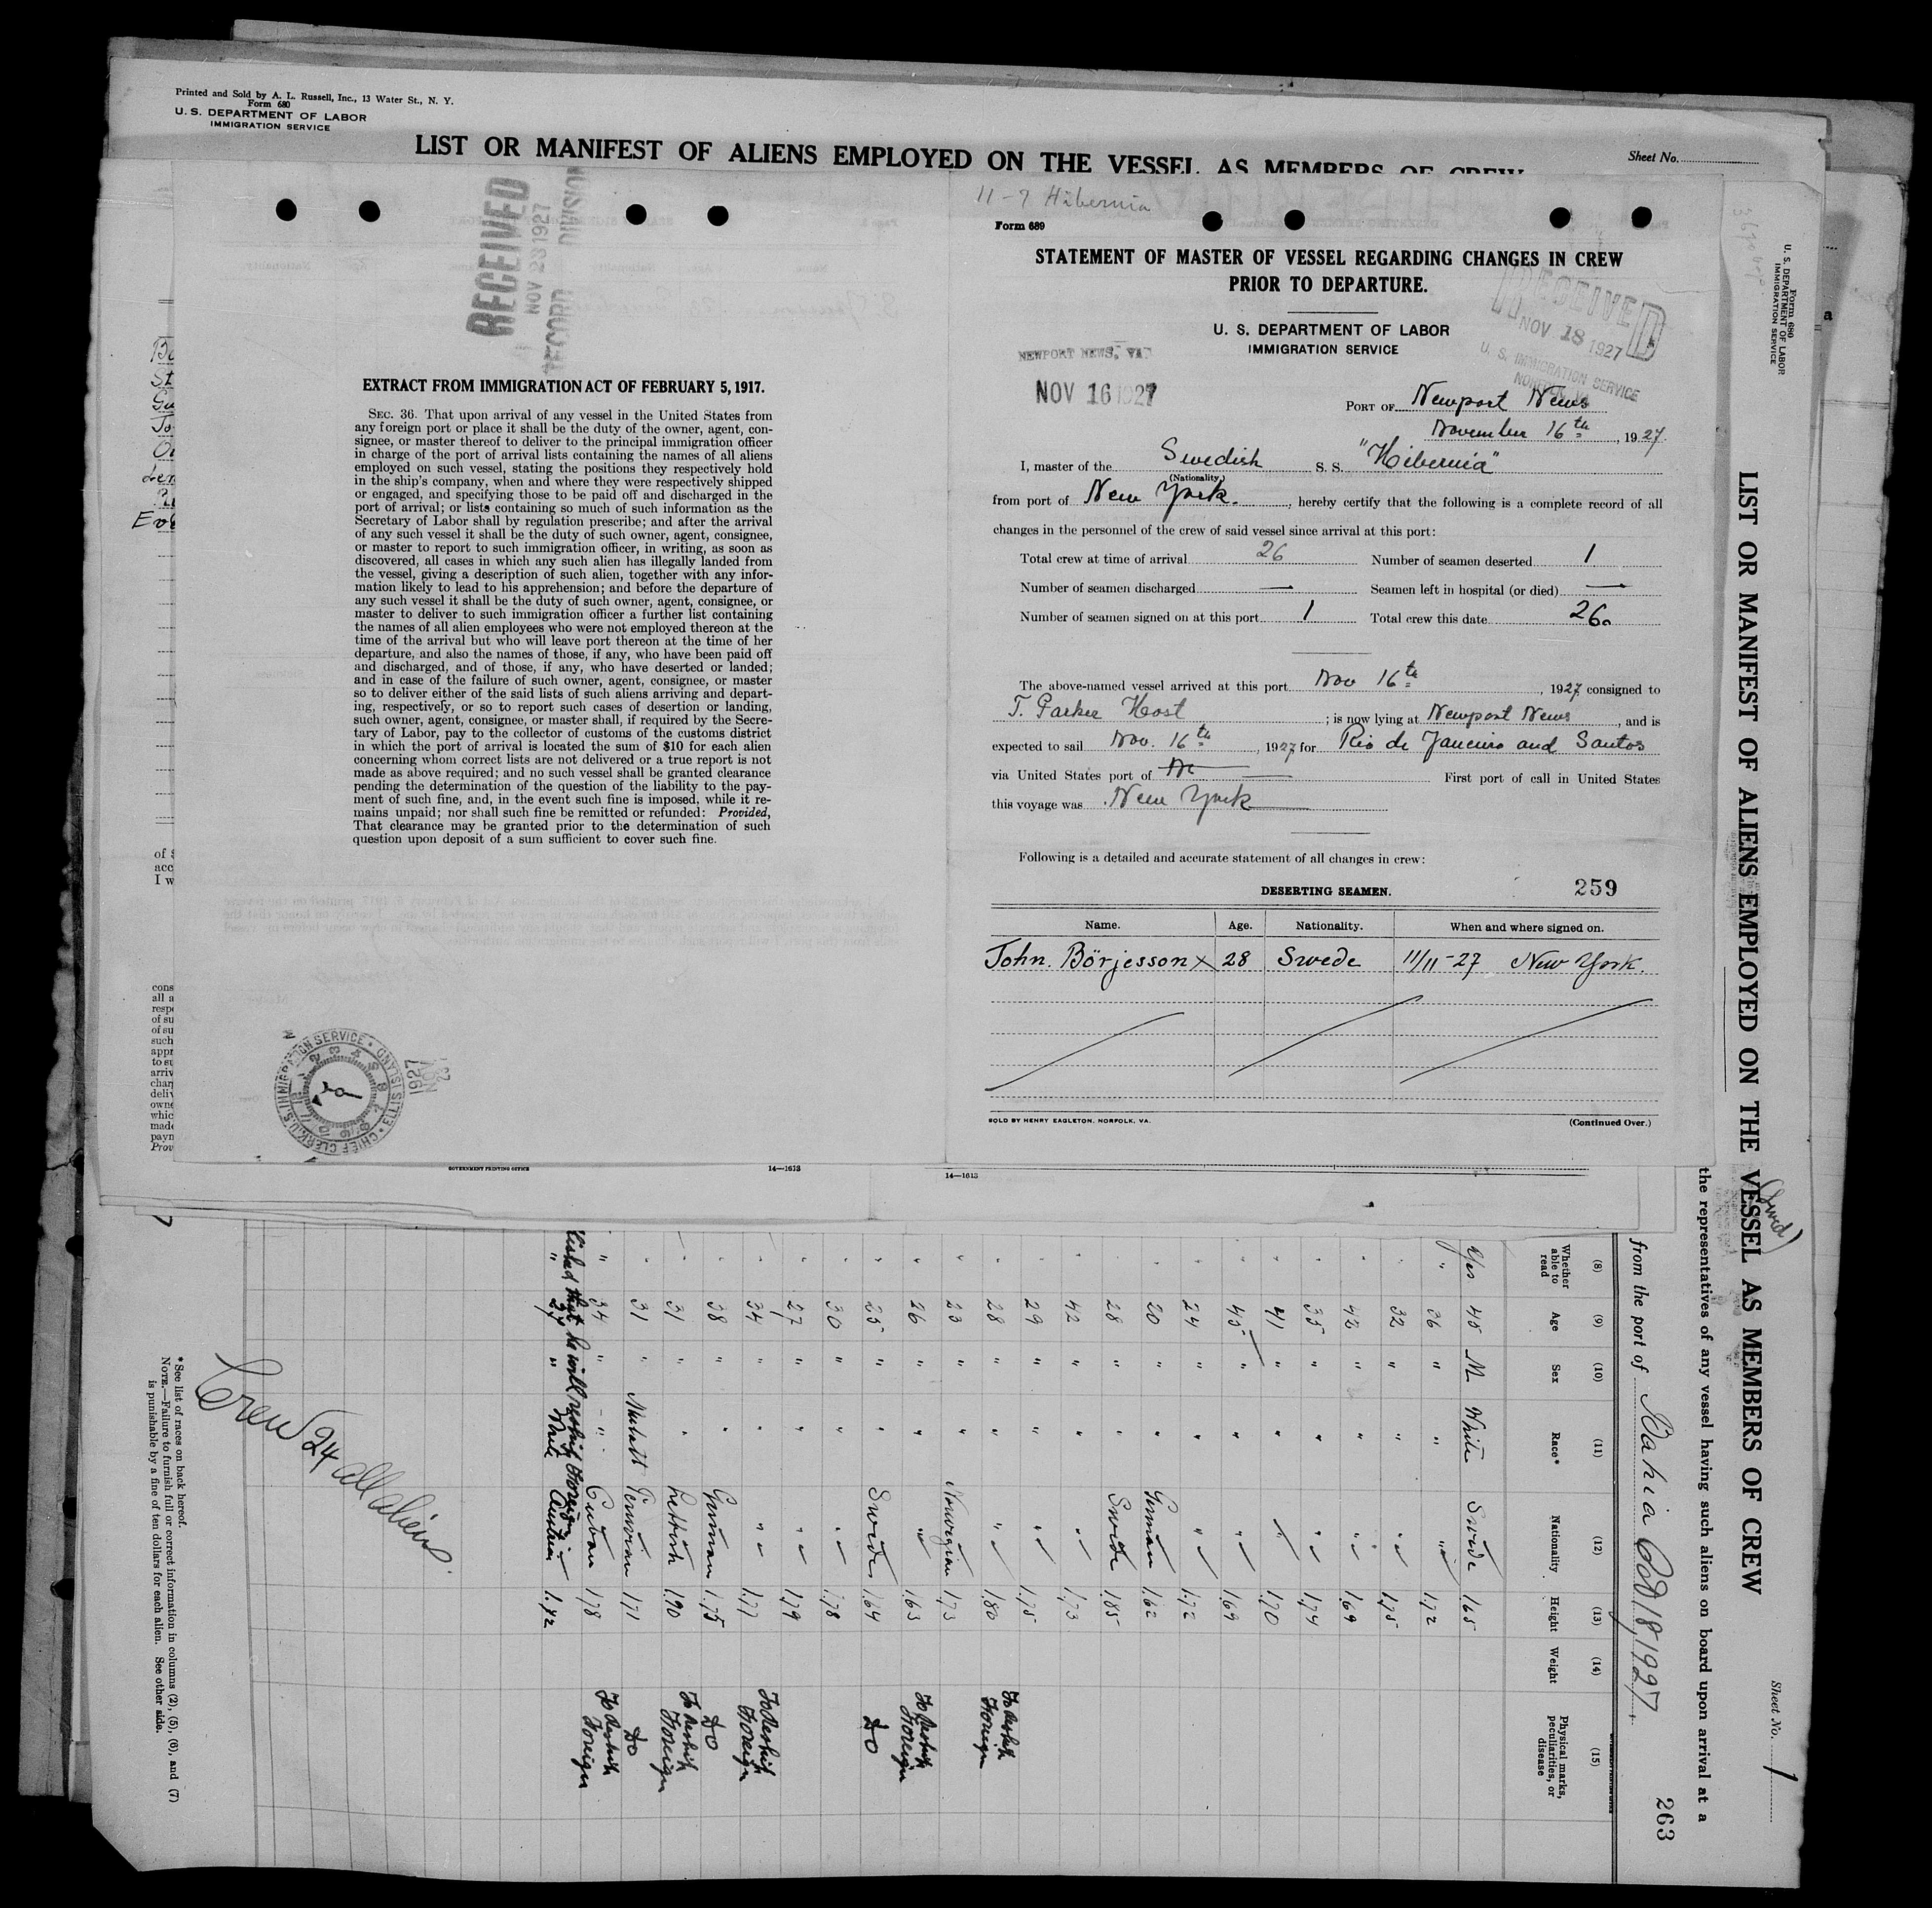 Printed and Sold by A. L. Russell, Inc., 13 Water St., N. Y.
Form 680
U. S. DEPARTMENT OF LABOR
IMMIGRATION SERVICE
LIST OR MANIFEST OF ALIENS EMPLOYED ON THE VESSEL AS MEMBERS OF CREW
Sheet No.
RECEIVED
NOV 23 1927
RECORD DIVISION
EXTRACT FROM IMMIGRATION ACT OF FEBRUARY 5, 1917.
SEC. 36. That upon arrival of any vessel in the United States from
any foreign port or place it shall be the duty of the owner, agent, con-
signee, or master thereof to deliver to the principal immigration officer
in charge of the port of arrival lists containing the names of all aliens
employed on such vessel, stating the positions they respectively hold
in the ship's company, when and where they were respectively shipped
or engaged, and specifying those to be paid off and discharged in the
port of arrival; or lists containing so much of such information as the
Secretary of Labor shall by regulation prescribe; and after the arrival
of any such vessel it shall be the duty of such owner, agent, consignee,
or master to report to such immigration officer, in writing, as soon as
discovered, all cases in which any such alien has illegally landed from
the vessel, giving a description of such alien, together with any infor-
mation likely to lead to his apprehension; and before the departure of
any such vessel it shall be the duty of such owner, agent, consignee, or
master to deliver to such immigration officer a further list containing
the names of all alien employees who were not employed thereon at the
time of the arrival but who will leave port thereon at the time of her
departure, and also the names of those, if any, who have been paid off
and discharged, and of those, if any, who have deserted or landed;
and in case of the failure of such owner, agent, consignee, or master
so to deliver either of the said lists of such aliens arriving and depart-
ing, respectively, or so to report such cases of desertion or landing,
such owner, agent, consignee, or master shall, if required by the Secre-
tary of Labor, pay to the collector of customs of the customs district
in which the port of arrival is located the sum of $10 for each alien
concerning whom correct lists are not delivered or a true report is not
made as above required; and no such vessel shall be granted clearance
pending the determination of the question of the liability to the pay-
ment of such fine, and, in the event such fine is imposed, while it re-
mains unpaid; nor shall such fine be remitted or refunded: Provided,
That clearance may be granted prior to the determination of such
question upon deposit of a sum sufficient to cover such fine.
CHIEF CLERK, U.S. IMMIGRATION SERVICE • ELLIS ISLAND
1927 NOV 23
GOVERNMENT PRINTING OFFICE
14—1613
11-7 Hibernia
Form 689
STATEMENT OF MASTER OF VESSEL REGARDING CHANGES IN CREW
PRIOR TO DEPARTURE.
U. S. DEPARTMENT OF LABOR
IMMIGRATION SERVICE
RECEIVED
NOV 18 1927
U. S. IMMIGRATION SERVICE
NEWPORT NEWS, VA.
NOV 16 1927
PORT OF Newport News
November 16th, 1927
I, master of the Swedish S. S. "Hibernia"
(Nationality)
from port of New York., hereby certify that the following is a complete record of all
changes in the personnel of the crew of said vessel since arrival at this port:
Total crew at time of arrival 26 Number of seamen deserted 1
Number of seamen discharged — Seamen left in hospital (or died) —
Number of seamen signed on at this port 1 Total crew this date 26
The above-named vessel arrived at this port Nov 16th, 1927 consigned to
T. Parker Host; is now lying at Newport News, and is
expected to sail Nov. 16th, 1927 for Rio de Janeiro and Santos
via United States port of — First port of call in United States
this voyage was New York
Following is a detailed and accurate statement of all changes in crew:
DESERTING SEAMEN. 259
Name. Age. Nationality. When and where signed on.
John. Börjesson x 28 Swede 11/11-27 New York.
SOLD BY HENRY EAGLETON, NORFOLK, VA. (Continued Over.)
14—1613
Form 680
U. S. DEPARTMENT OF LABOR
IMMIGRATION SERVICE
LIST OR MANIFEST OF ALIENS EMPLOYED ON THE VESSEL AS MEMBERS OF CREW
Sheet No. 1
the representatives of any vessel having such aliens on board upon arrival at a
from the port of Bahia Oct 18, 1927
263
(8) (9) (10) (11) (12) (13) (14) (15)
Whether able to read Age Sex Race* Nationality Height Weight Physical marks, peculiarities, or disease
Yes 45 M White Swede 1.65
" 36 " " " 1.72
32 " " " 1.75
42 " " " 1.69
35 " " " 1.74
41 " " 1.70
45 " " " 1.69
24 " " " 1.72
20 " " German 1.62
28 " " Swede 1.85
42 " " " 1.73
29 " " " 1.75
28 " " " 1.80 To Reship Foreign
23 " " Norwegian 1.73
26 " " " 1.63 To Reship Foreign
25 " " Swede 1.64 Do
30 " " " 1.78
27 " " " 1.79
34 " " " 1.77 To Reship Foreign
38 " " German 1.75 Do
31 " " Lettish 1.90 To Reship Foreign
31 " Mulatt Peruvian 1.71 Do
" 34 " " Cuban 1.78 To Reship Foreign
that he will reship Foreign
" 24 " White Austrian 1.72
Crew 24 all aliens.
*See list of races on back hereof.
NOTE.—Failure to furnish full or correct information in columns (2), (5), (6), and (7)
is punishable by a fine of ten dollars for each alien. See other side.